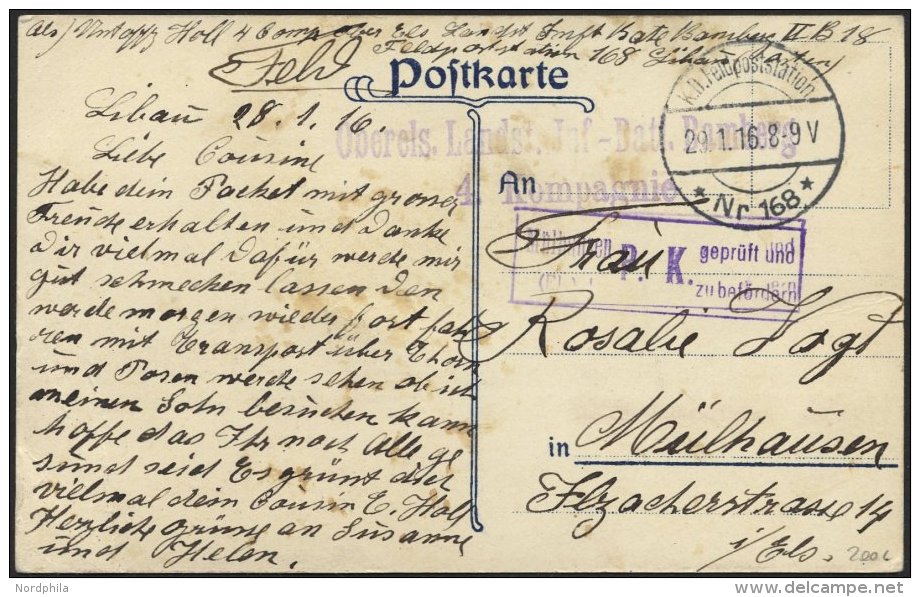 Als) Untoffz Holl 4 Comp Ober Els Landst Inft Batt Bamberg II B 18
Feldpoststation 168 Libau
Feld
Postkarte
K.D. Feldpoststation
29.1.16.8-9V
* Nr 168 *
Oberels. Landst. Inf-Batl. Bamberg
4. Kompagnie
Libau 28.1.16.
Liebe Cousine
Habe dein Packet mit grosser
Freude erhalten und danke
dir vielmal dafür werde mir
gut schmecken lassen den
werde morgen wieder fort fah
ren mit Transport über Thorn
und Posen werde sehen ob ich
meinen Sohn besuchen kann
hoffe das Ihr noch Alle ge
sund seid Es grünt dich
vielmal dein Cousin E. Holl
Herzliche grüsse an Susanne
und Helen.
An
Mülhausen P. K. geprüft und
zu befördern
Frau
Rosalie Vogt
in Mülhausen
Ilzacherstrasse 14
i/Els.
Nordphila
www.delcampe.net